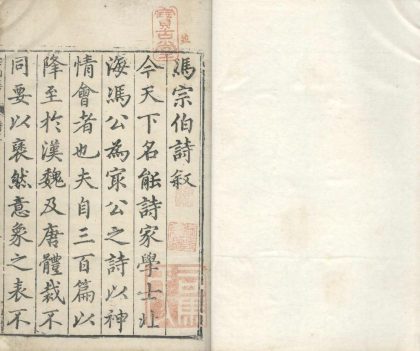 馮宗伯詩叙
今天下名能詩家學士北
海馮公為冣公之詩以神
情會者也夫自三百篇以
降至於漢魏及唐體裁不
同要以褎然意象之表不